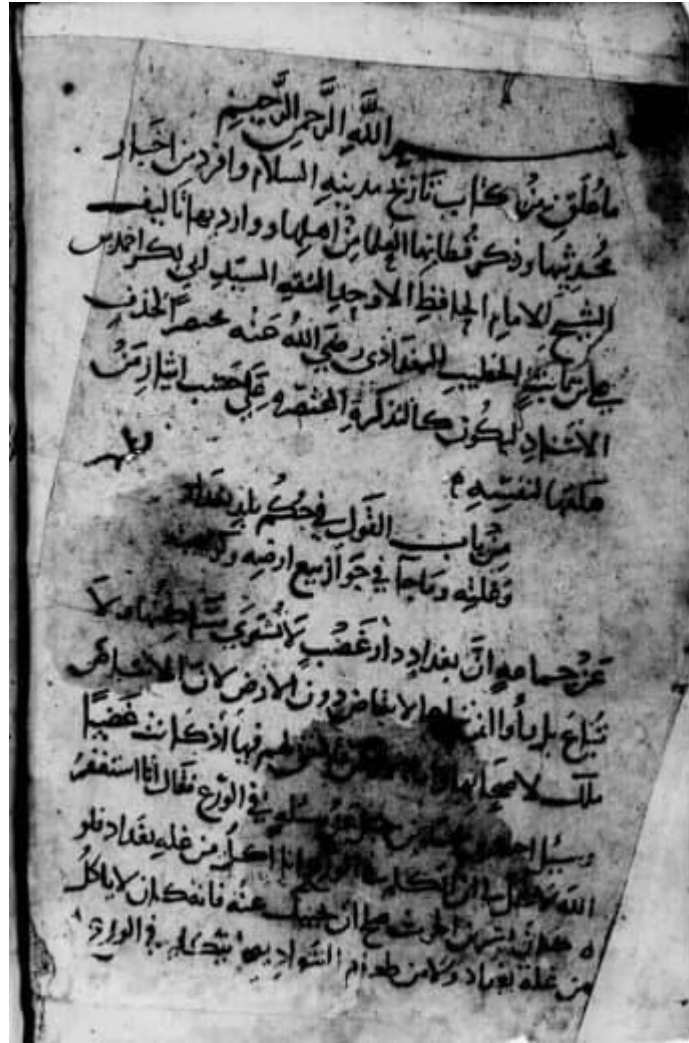 بسم الله الرحمن الرحيم
ما علق من كتاب تاريخ مدينة السلام وافرد من اخبار
محدثيها وذكر قطانها العلما من اهلها ووارديها تاليف
الشيخ الامام الحافظ الاوحد الثقه السيد ابي بكر احمد بن
علي بن ثابت الخطيب البغدادي رضي الله عنه مختصر الحذف
الاسناد ليكون كالتذكرة المختصره علي حسب ايثار من
علقها لنفسه
من باب القول في حكم بلد بغداد
وغلته وما جآ في جواز بيع ارضه وكراهته
عن جماعه ان بغداد دار غصب لا تشترى مساكنها ولا
تباع بل رأوا الانقاض دون الارض لان الانقاض
ملك لاصحابها فيها اذ كانت غصبا
وسيل احمد بن حنبل عن مسله في الورع فقال انا استغفر
الله لا يحل لي ان اتكلم في الورع وانا اكل من غله بغداد فلو
كان بشر بن الحرث صلح ان يجيبك عنه فانه كان لا ياكل
من غلة بغداد ولا من طعام السواد يتكلم في الورع